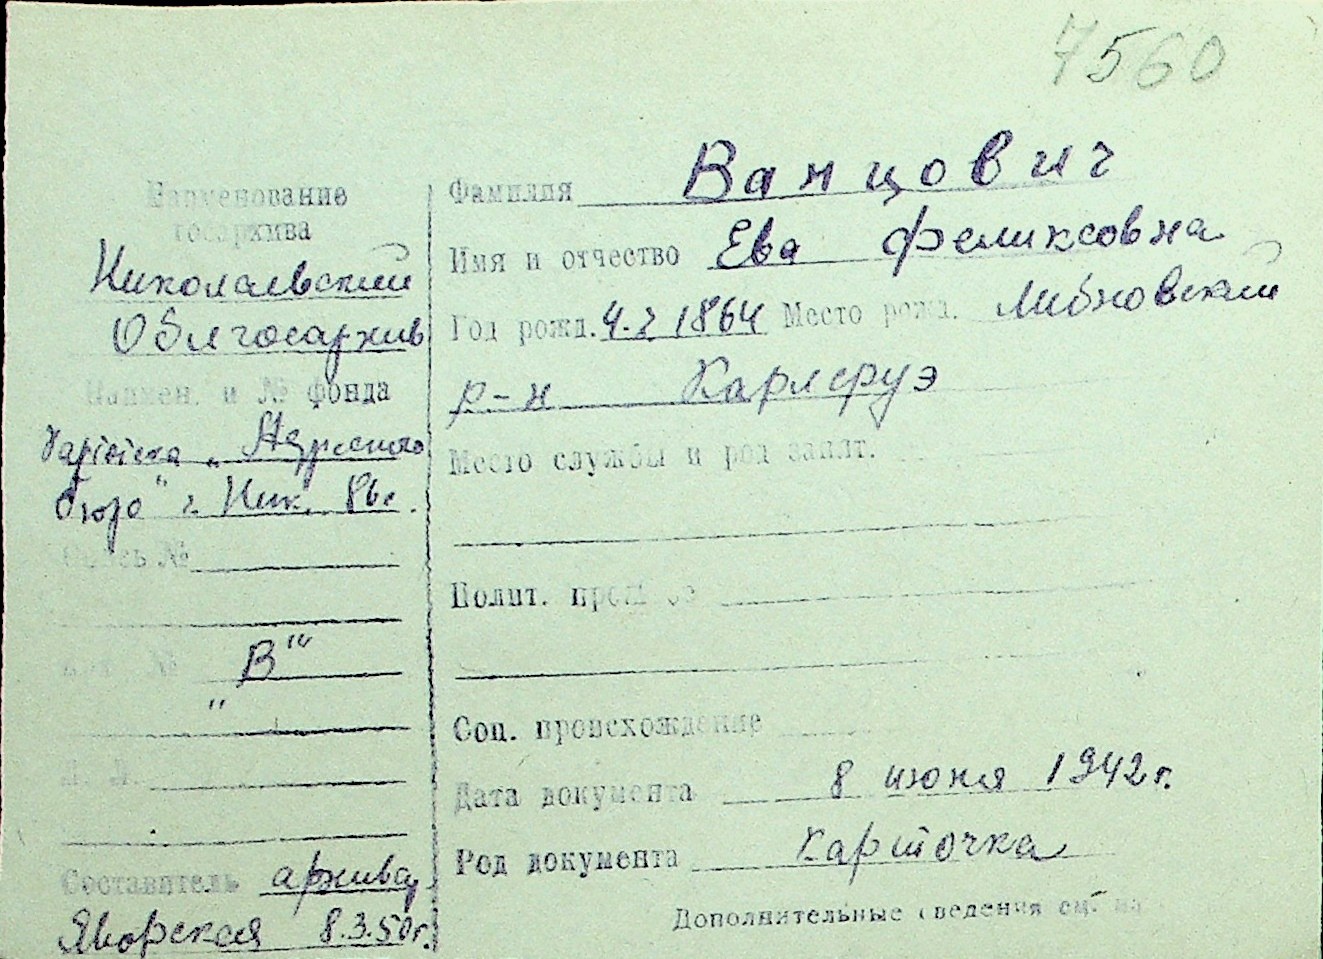 7560
Наименование
госархива
Николаевский
Облгосархив
Наимен. и № фонда
Картотека „Адресного
бюро" г. Ник.
Опись №
№ „В"
Составитель архива
Яворская 8.3.50г.
Фамилия Ванцович
Имя и отчество Ева Феликсовна
Год рожд. 4.2 1864 Место рожд.
р-н Карлсруэ
Место службы и род занят.
Полит.
Соц. происхождение
Дата документа 8 июня 1942 г.
Род документа Карточка
Дополнительные сведения см. на